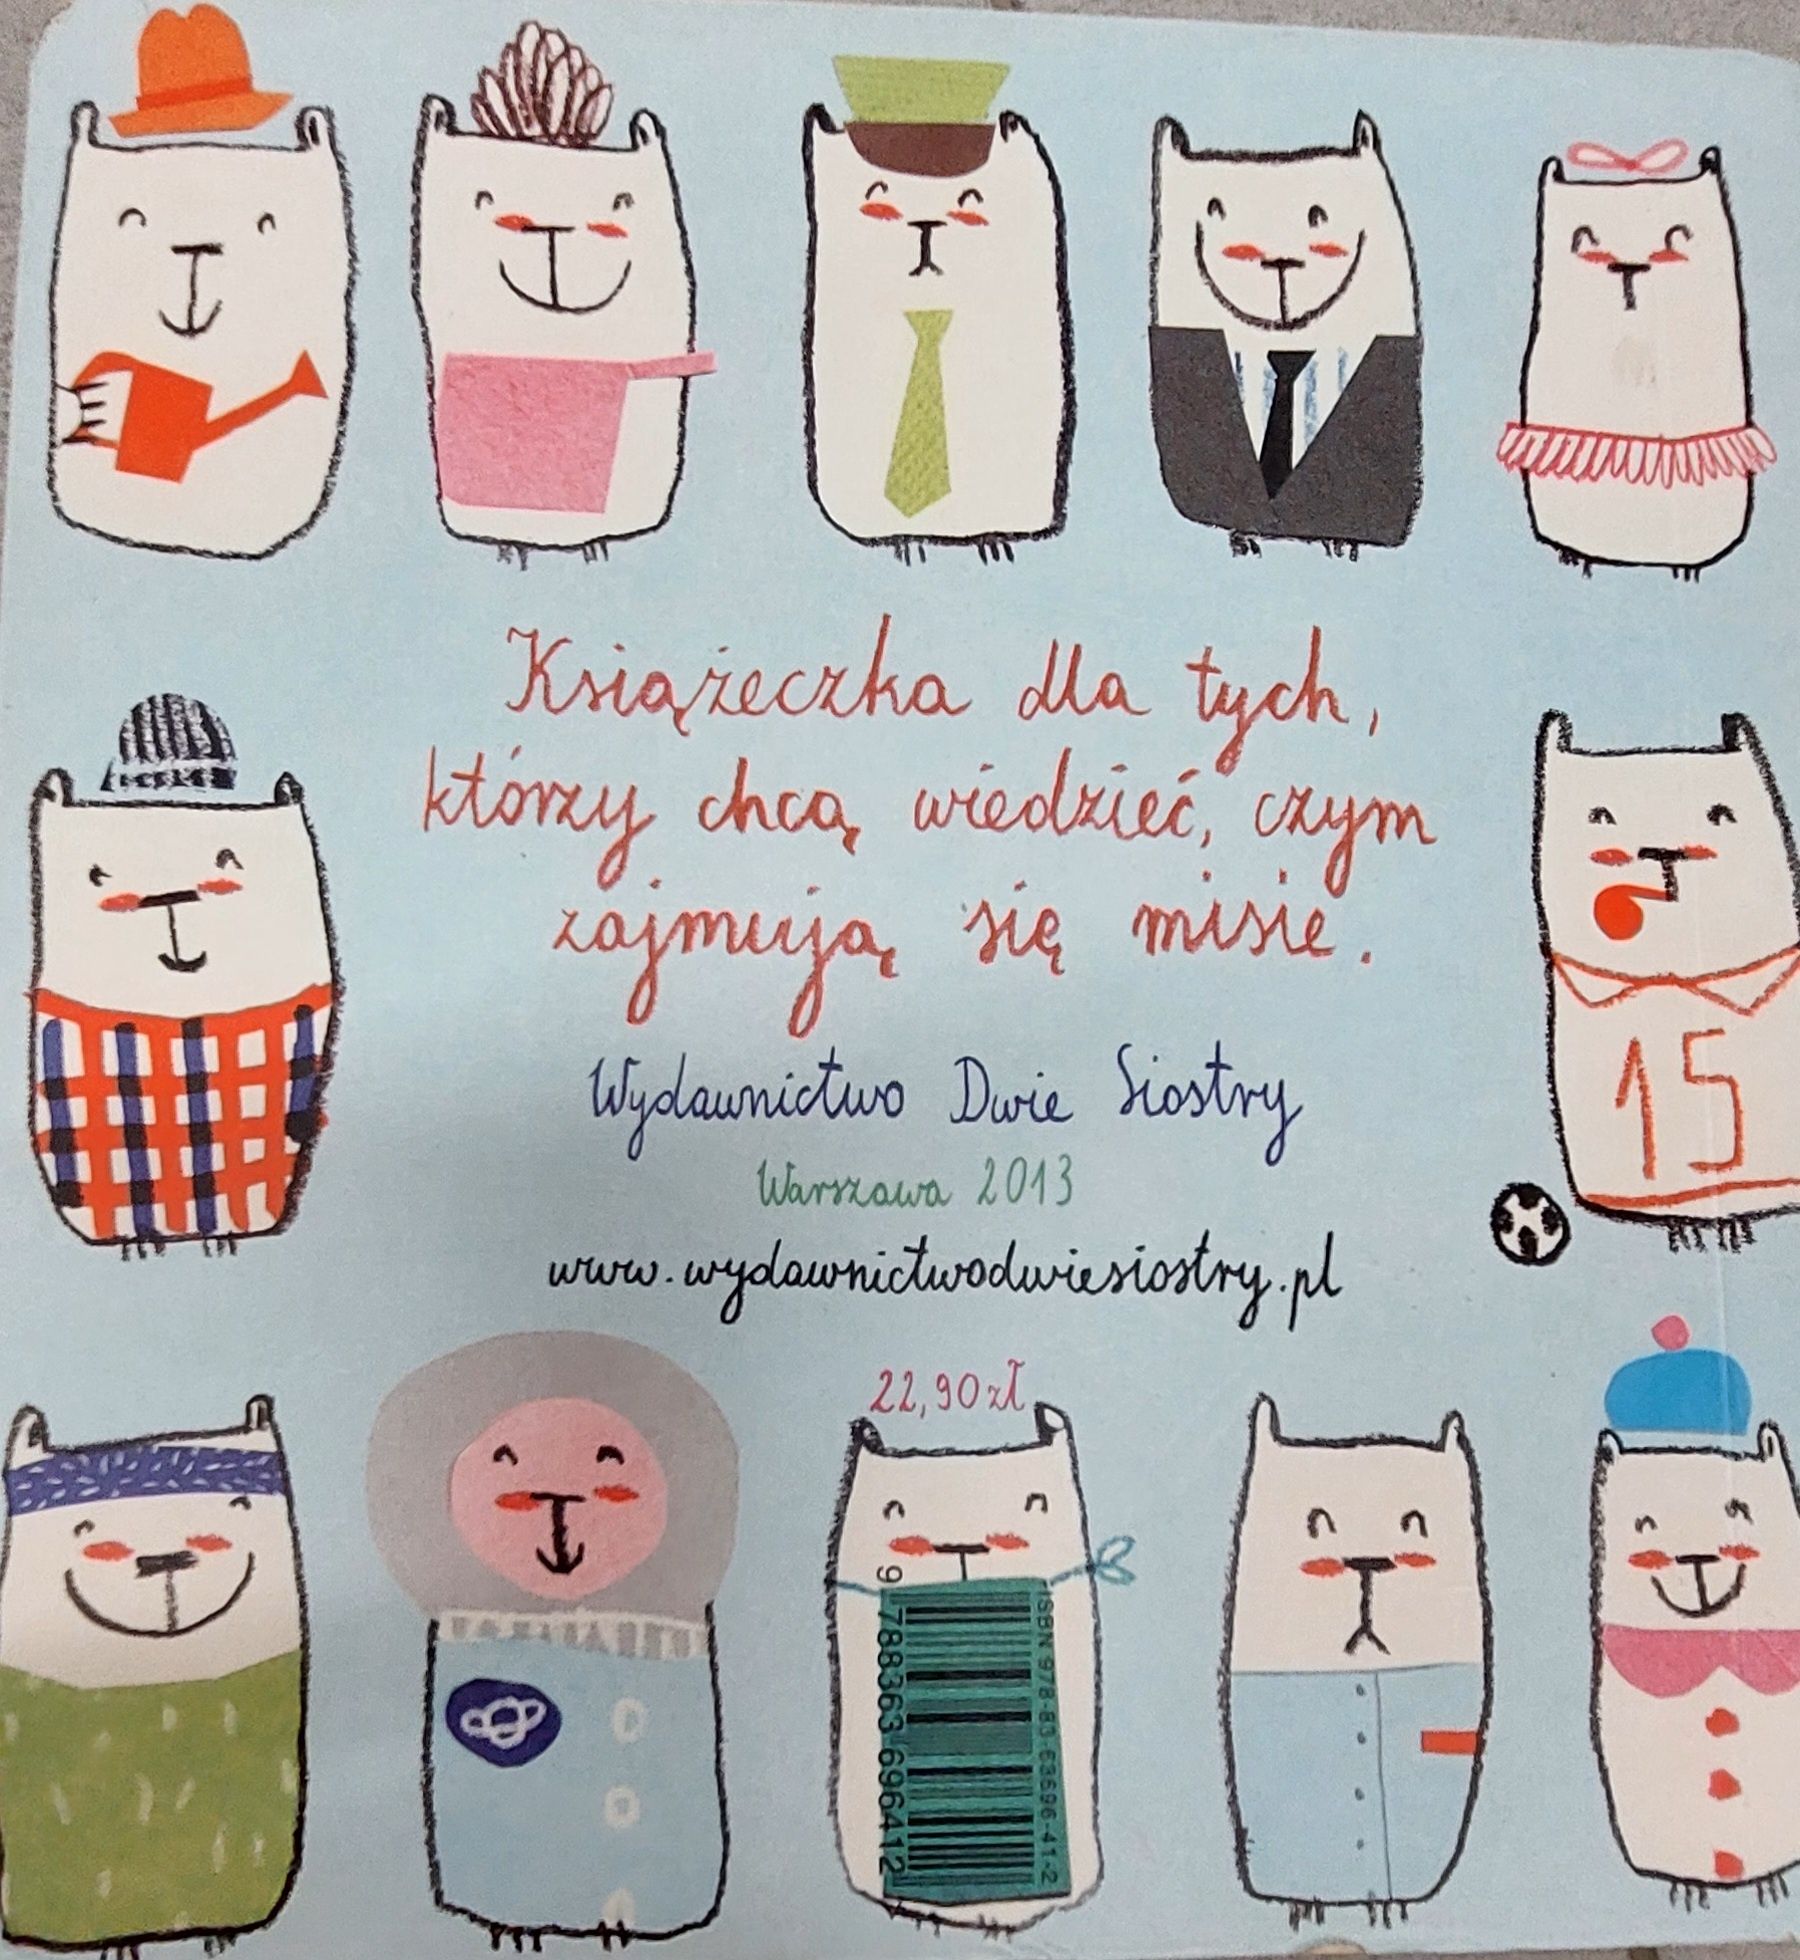 Książeczka dla tych,
którzy chcą wiedzieć, czym
zajmują się misie.
Wydawnictwo Dwie Siostry
15
Warszawa 2013
www.wydawnictwodwiesiostry.pl
22,90 zł
ISBN 978-83-63696-41-2
9 788363 696412